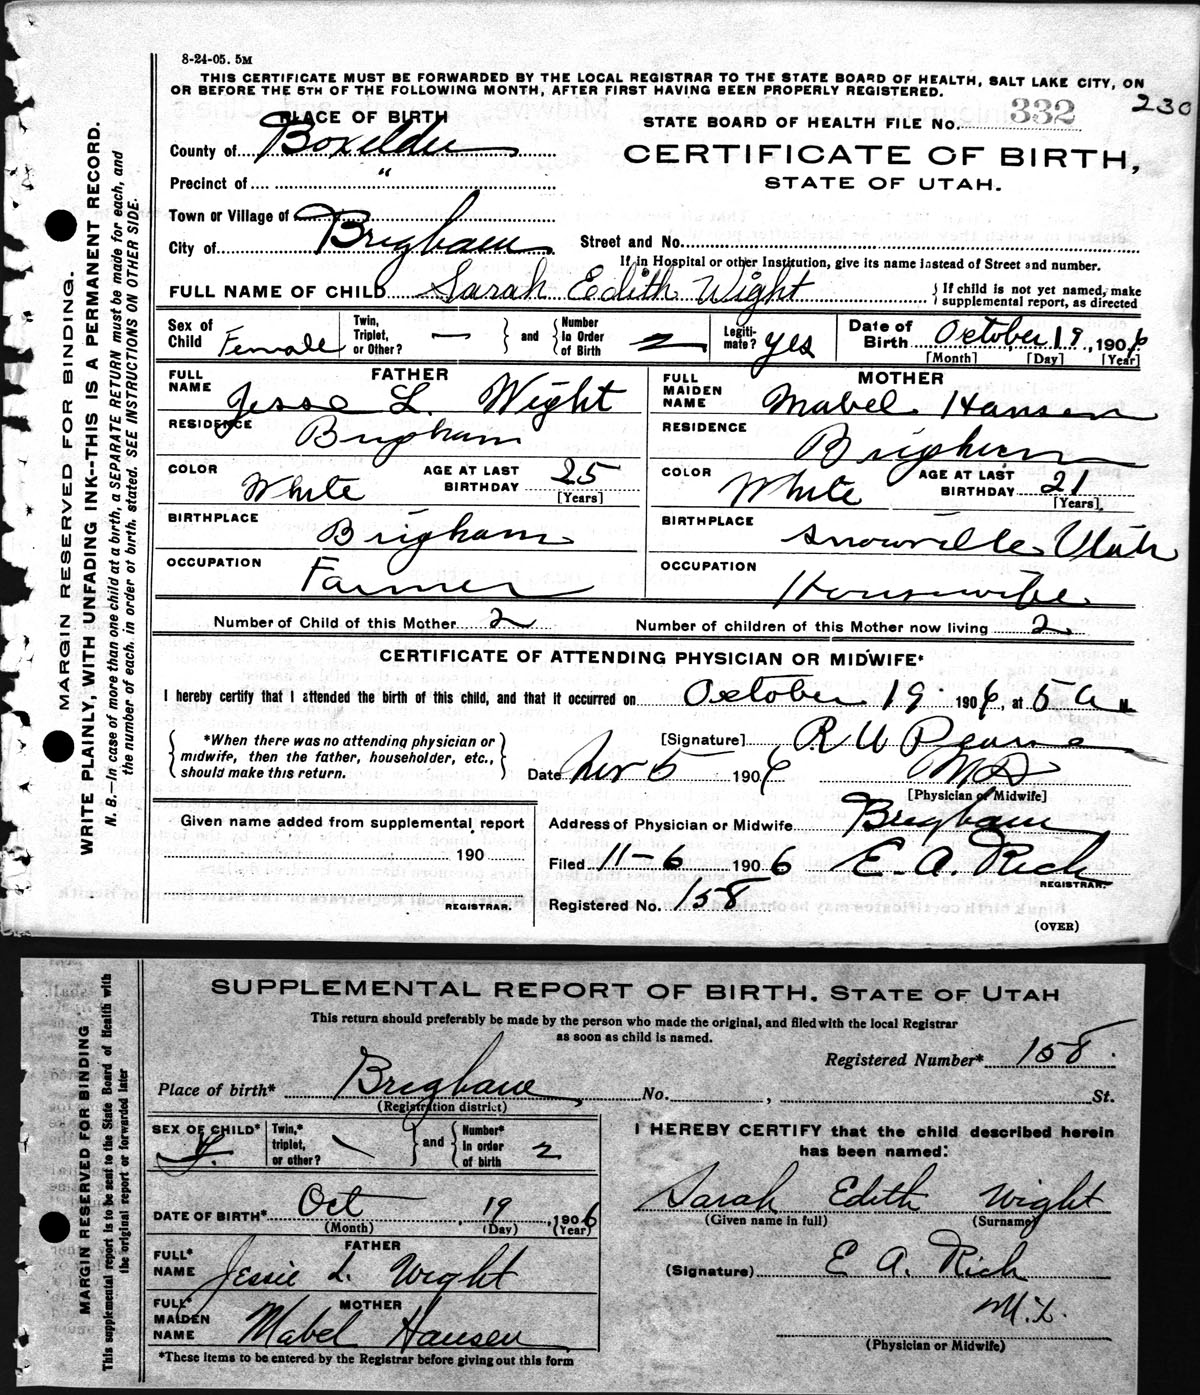 8-24-05. 5M
THIS CERTIFICATE MUST BE FORWARDED BY THE LOCAL REGISTRAR TO THE STATE BOARD OF HEALTH, SALT LAKE CITY, ON
OR BEFORE THE 5TH OF THE FOLLOWING MONTH, AFTER FIRST HAVING BEEN PROPERLY REGISTERED.
230
PLACE OF BIRTH
STATE BOARD OF HEALTH FILE No. 332
County of Boxelder
CERTIFICATE OF BIRTH,
STATE OF UTAH.
Precinct of "
Town or Village of
City of Brigham
Street and No.
If in Hospital or other Institution, give its name instead of Street and number.
FULL NAME OF CHILD Sarah Edith Wight
If child is not yet named, make
supplemental report, as directed
Sex of Child Female
Twin, Triplet, or Other? —
and
Number In Order of Birth 2
Legiti- mate? yes
Date of Birth October 19, 1906
[Month] [Day] [Year]
FATHER
FULL NAME Jesse L. Wight
RESIDENCE Brigham
COLOR White
AGE AT LAST BIRTHDAY 25
[Years]
BIRTHPLACE Brigham
OCCUPATION Farmer
MOTHER
FULL MAIDEN NAME Mabel Hansen
RESIDENCE Brigham
COLOR White
AGE AT LAST BIRTHDAY 21
[Years]
BIRTHPLACE Snowville Utah
OCCUPATION Housewife
Number of Child of this Mother 2
Number of children of this Mother now living 2
CERTIFICATE OF ATTENDING PHYSICIAN OR MIDWIFE*
I hereby certify that I attended the birth of this child, and that it occurred on October 19 1906, at 5 a M.
*When there was no attending physician or
midwife, then the father, householder, etc.,
should make this return.
[Signature] R W
M D
Date Nov 5 1906
[Physician or Midwife]
Given name added from supplemental report
190
REGISTRAR.
Address of Physician or Midwife Brigham
Filed 11-6 1906 E. A. Rich
REGISTRAR.
Registered No. 158
(OVER)
MARGIN RESERVED FOR BINDING.
WRITE PLAINLY, WITH UNFADING INK--THIS IS A PERMANENT RECORD.
N. B.—In case of more than one child at a birth, a SEPARATE RETURN must be made for each, and
the number of each, in order of birth, stated. SEE INSTRUCTIONS ON OTHER SIDE.
SUPPLEMENTAL REPORT OF BIRTH. STATE OF UTAH
This return should preferably be made by the person who made the original, and filed with the local Registrar
as soon as child is named.
Registered Number* 158.
Place of birth* Brigham No. , St.
(Registration district)
SEX OF CHILD* f.
Twin,* triplet, or other?
and
Number* In order of birth 2
DATE OF BIRTH* Oct 19, 1906
(Month) (Day) (Year)
FATHER
FULL* NAME Jessie L. Wight
MOTHER
FULL* MAIDEN NAME Mabel Hansen
*These items to be entered by the Registrar before giving out this form
I HEREBY CERTIFY that the child described herein
has been named:
Sarah Edith Wight
(Given name in full) (Surname)
(Signature) E A. Rich
M.D.
(Physician or Midwife)
MARGIN RESERVED FOR BINDING
This supplemental report is to be sent to the State Board of Health with
the original report or forwarded later